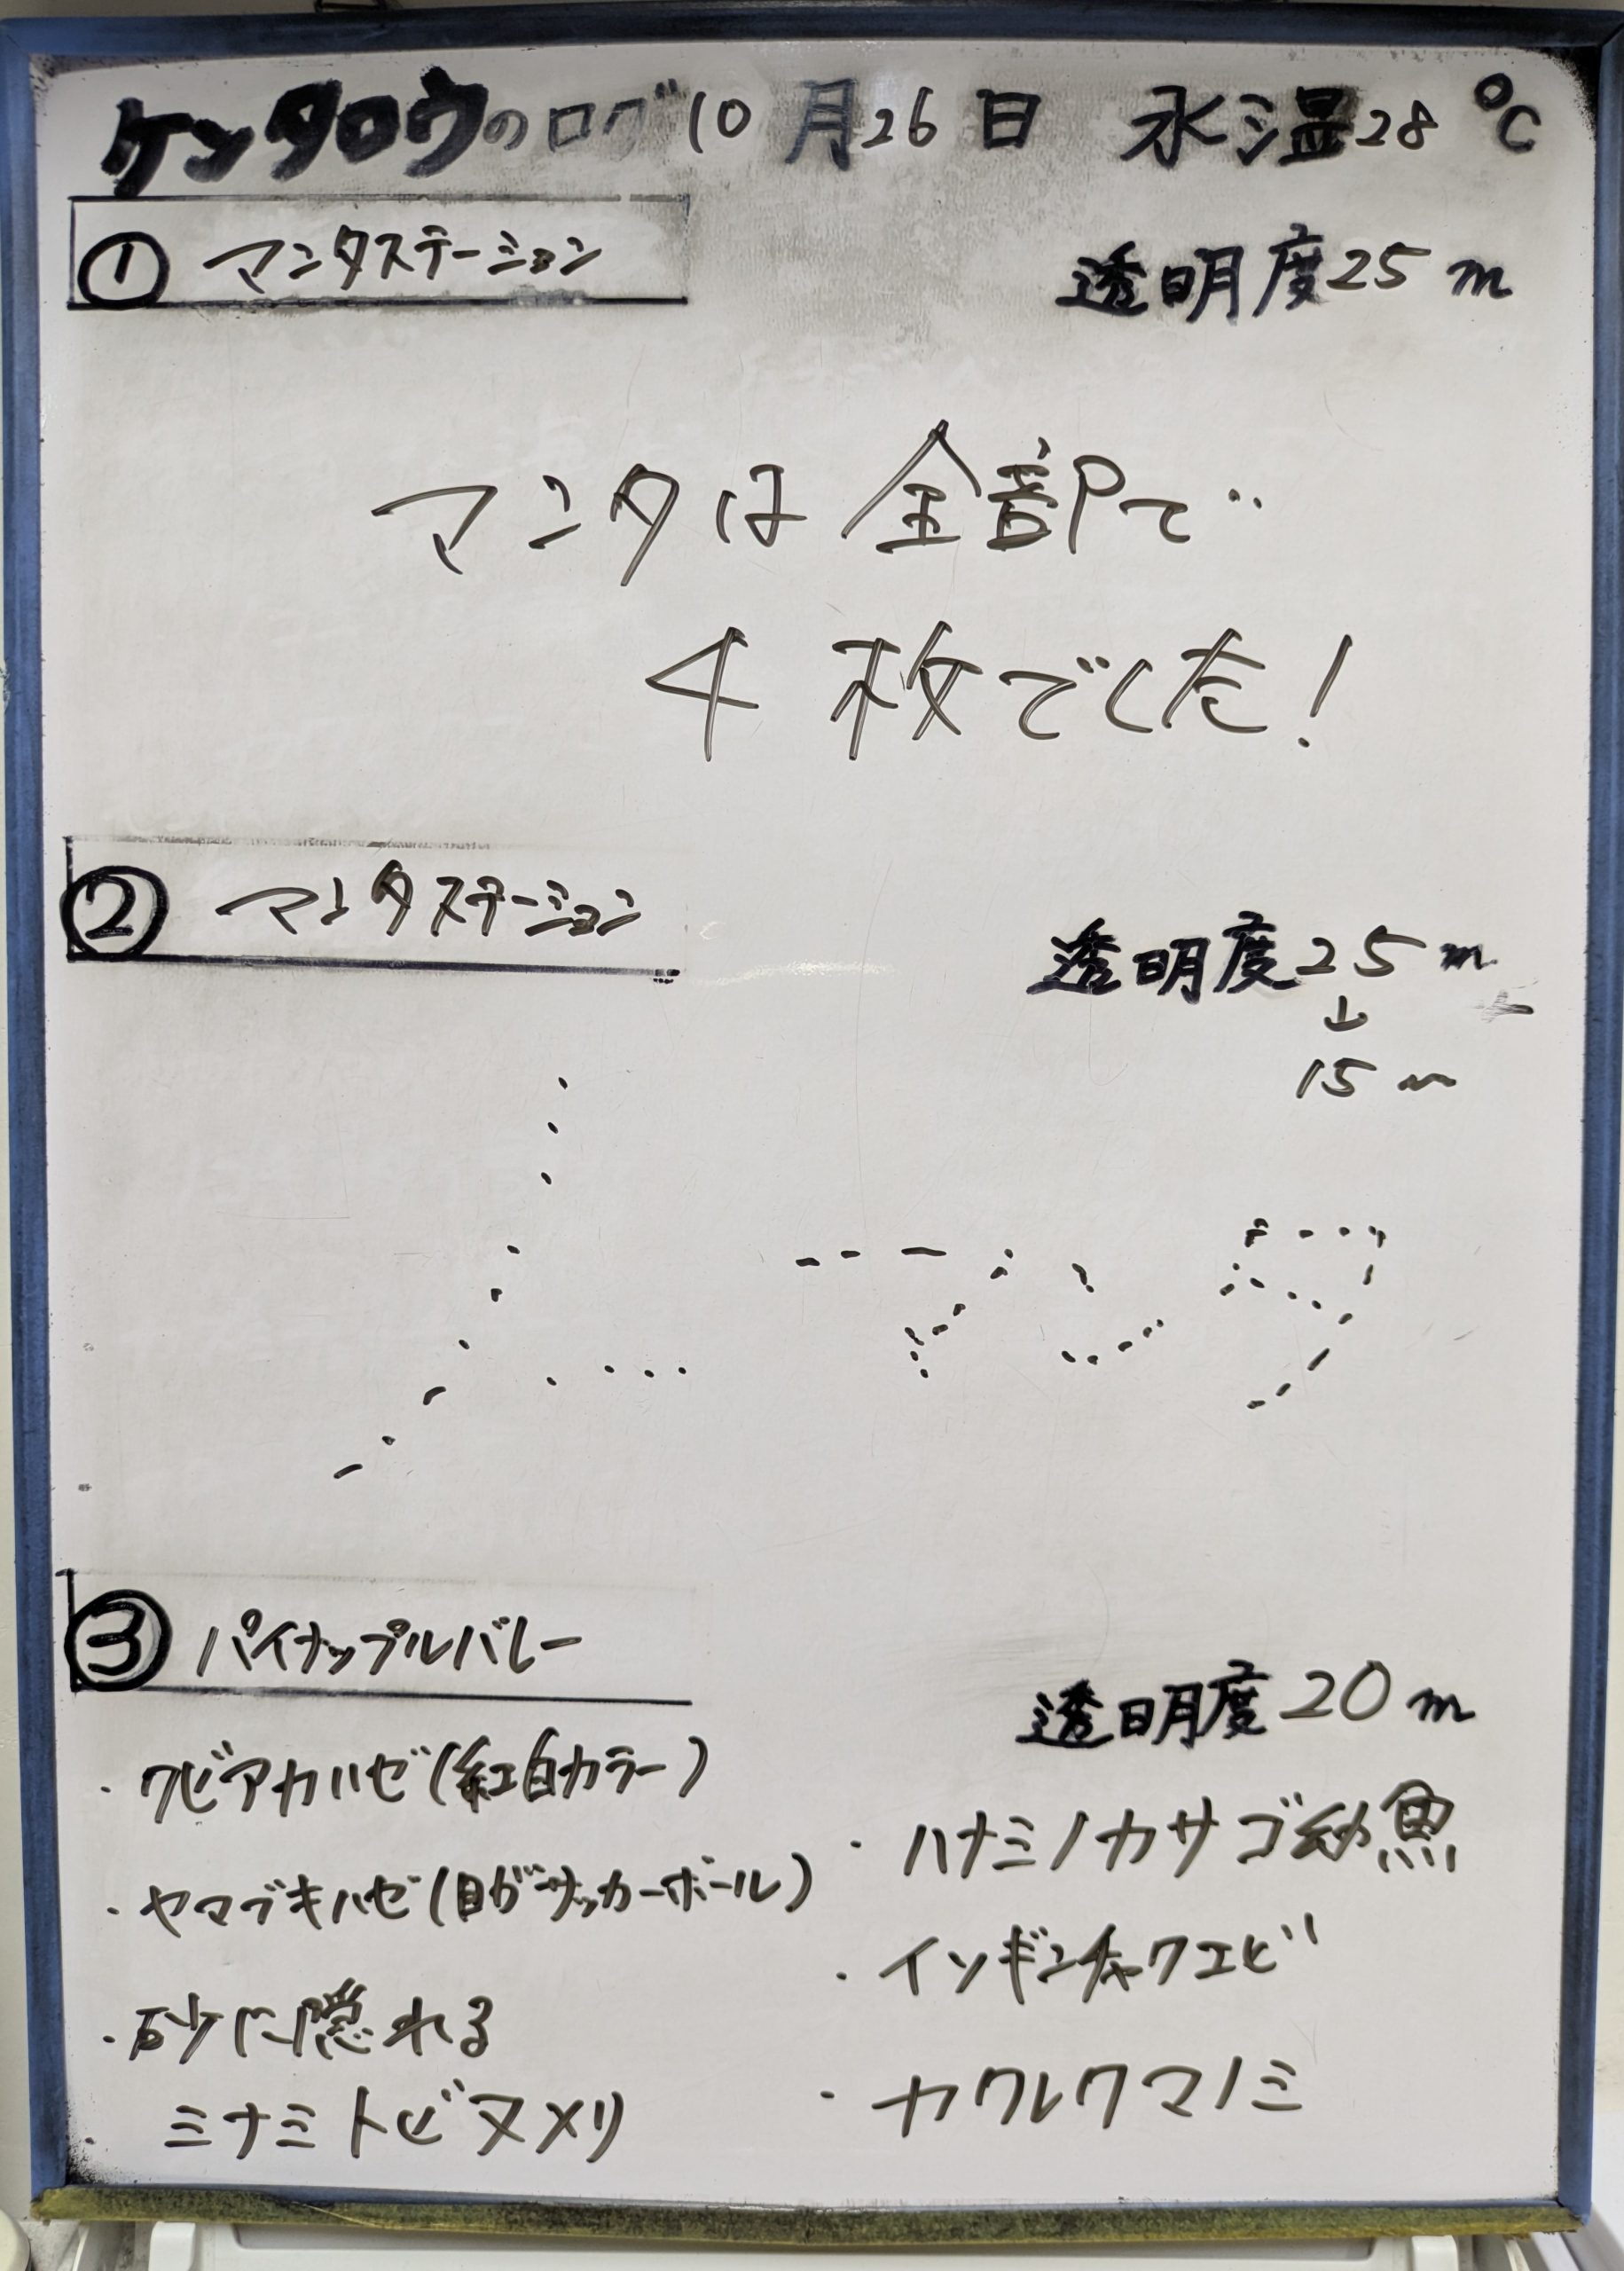 ケンタロウのログ 10月26日 水温28℃
① マンタステーション
透明度25m
マンタは全部で‥
4枚でした!
② マンタステーション
透明度25m
↓
15m
③ パイナップルバレー
透明度20m
・クビアカハゼ(紅白カラー)
・ヤマブキハゼ(目がサッカーボール)
・砂に隠れる
ミナミトビヌメリ
・ハナミノカサゴ幼魚
・イソギンチャクエビ
・カクレクマノミ